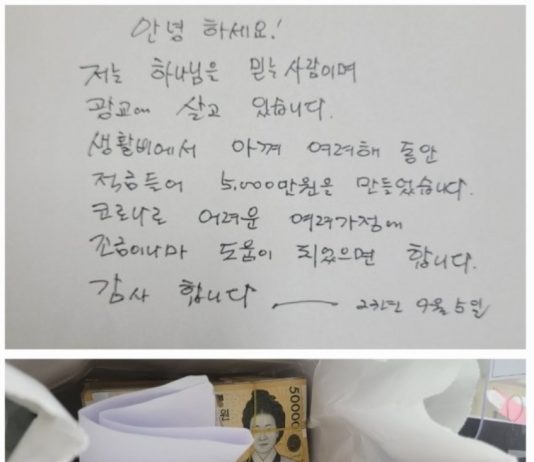 안녕 하세요!
저는 하나님은 믿는 사람이며
광교에 살고 있습니다.
생활비에서 아껴 여러해 동안
적금들어 5,000만원을 만들었습니다.
코로나로 어려운 여러가정에
조금이나마 도움이 되었으면 합니다.
감사 합니다 9월 5일
50000
원